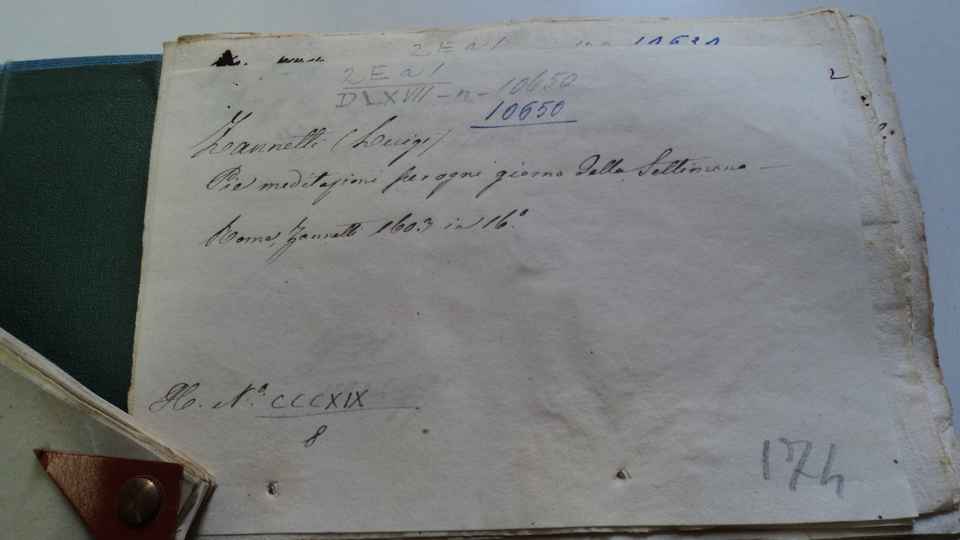 2 E a 1
2 E a 1
DLXVII - n - 10650
10650
2
Zannetti (Luigi)
Pie meditazioni per ogni giorno della Settimana -
Roma, Zannetti 1603 in 16.º
H. Nº CCCXIX
8
174